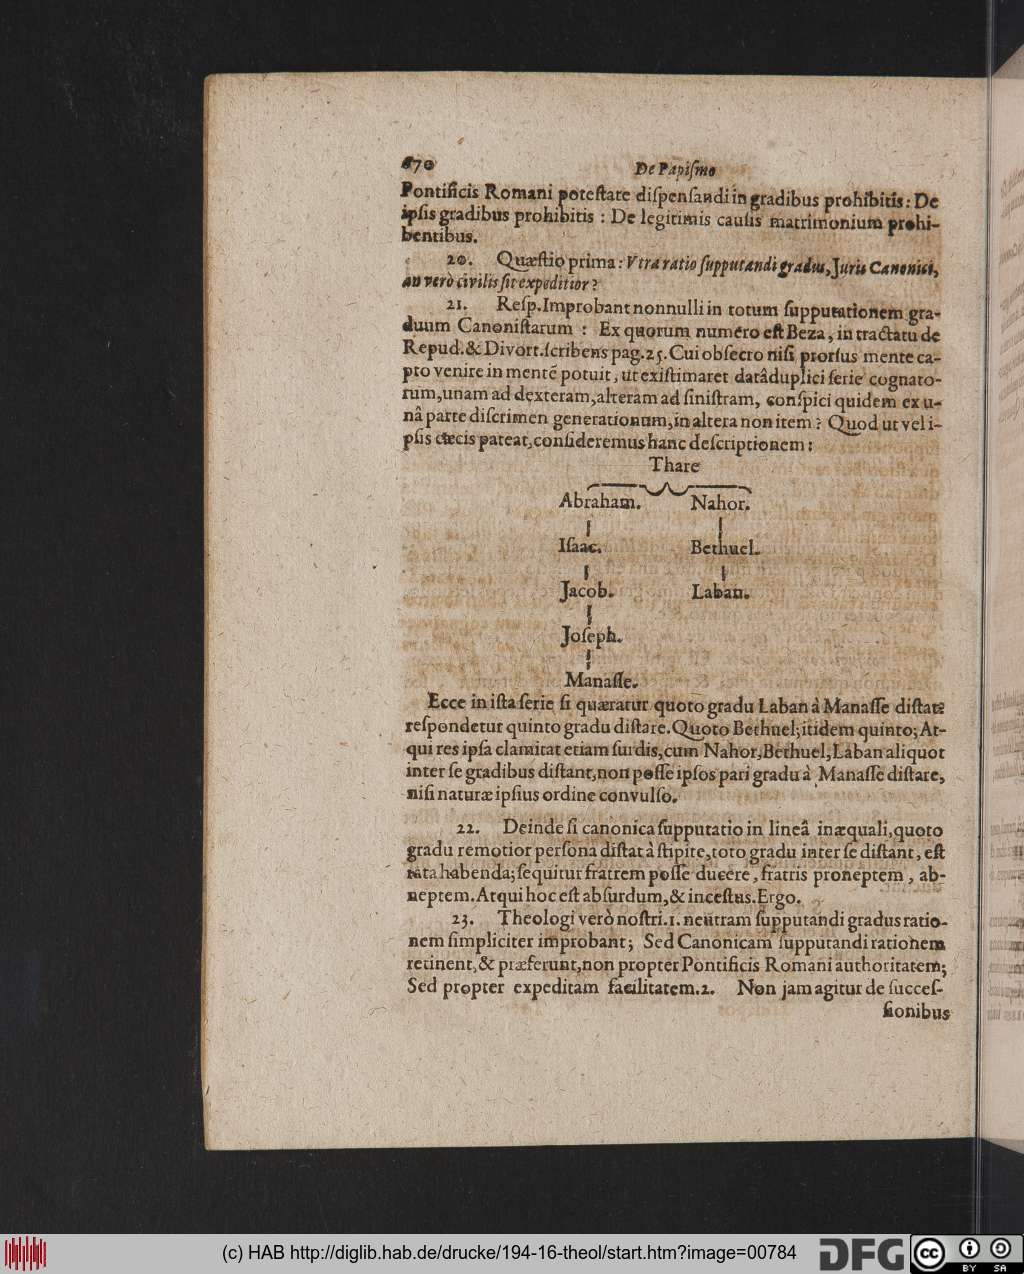 670 De Papiſmo
Pontificis Romani poteſtate diſpenſandi in gradibus prohibitis: De
ipſis gradibus prohibitis : De legitimis cauſis matrimonium prohi-
bentibus.
20. Quæſtio prima: Vtra ratio ſupputandi gradus, Juris Canonici,
an verò civilis ſit expeditior?
21. Reſp. Improbant nonnulli in totum ſupputationem gra-
duum Canoniſtarum : Ex quorum numero eſt Beza, in tractatu de
Repud. & Divort. ſcribens pag. 25. Cui obſecro niſi prorſus mente ca-
pto venire in mentē potuit, ut exiſtimaret datâ duplici ſerie cognato-
rum, unam ad dexteram, alteram ad ſiniſtram, conſpici quidem ex u-
nâ parte diſcrimen generationum, in altera non item? Quod ut vel i-
pſis cæcis pateat, conſideremus hanc deſcriptionem:
Thare
Abraham. Nahor.
Iſaac. Bethuel.
Jacob. Laban.
Joſeph.
Manaſſe.
Ecce in iſta ſerie ſi quæratur quoto gradu Laban à Manaſſe diſtat?
reſpondetur quinto gradu diſtare. Quoto Bethuel; itidem quinto; At-
qui res ipſa clamitat etiam ſurdis, cum Nahor, Bethuel, Laban aliquot
inter ſe gradibus diſtant, non poſſe ipſos pari gradu à Manaſſe diſtare,
niſi naturæ ipſius ordine convulſo.
22. Deinde ſi canonica ſupputatio in lineâ inæquali, quoto
gradu remotior perſona diſtat à ſtipite, toto gradu inter ſe diſtant, eſt
rata habenda; ſequitur fratrem poſſe ducere, fratris proneptem, ab-
neptem. Atqui hoc eſt abſurdum, & inceſtus. Ergo.
23. Theologi verò noſtri. 1. neutram ſupputandi gradus ratio-
nem ſimpliciter improbant; Sed Canonicam ſupputandi rationem
retinent, & præferunt, non propter Pontificis Romani authoritatem;
Sed propter expeditam facilitatem. 2. Non jam agitur de ſucceſ-
ſionibus
(c) HAB http://diglib.hab.de/drucke/194-16-theol/start.htm?image=00784
DFG
cc BY SA